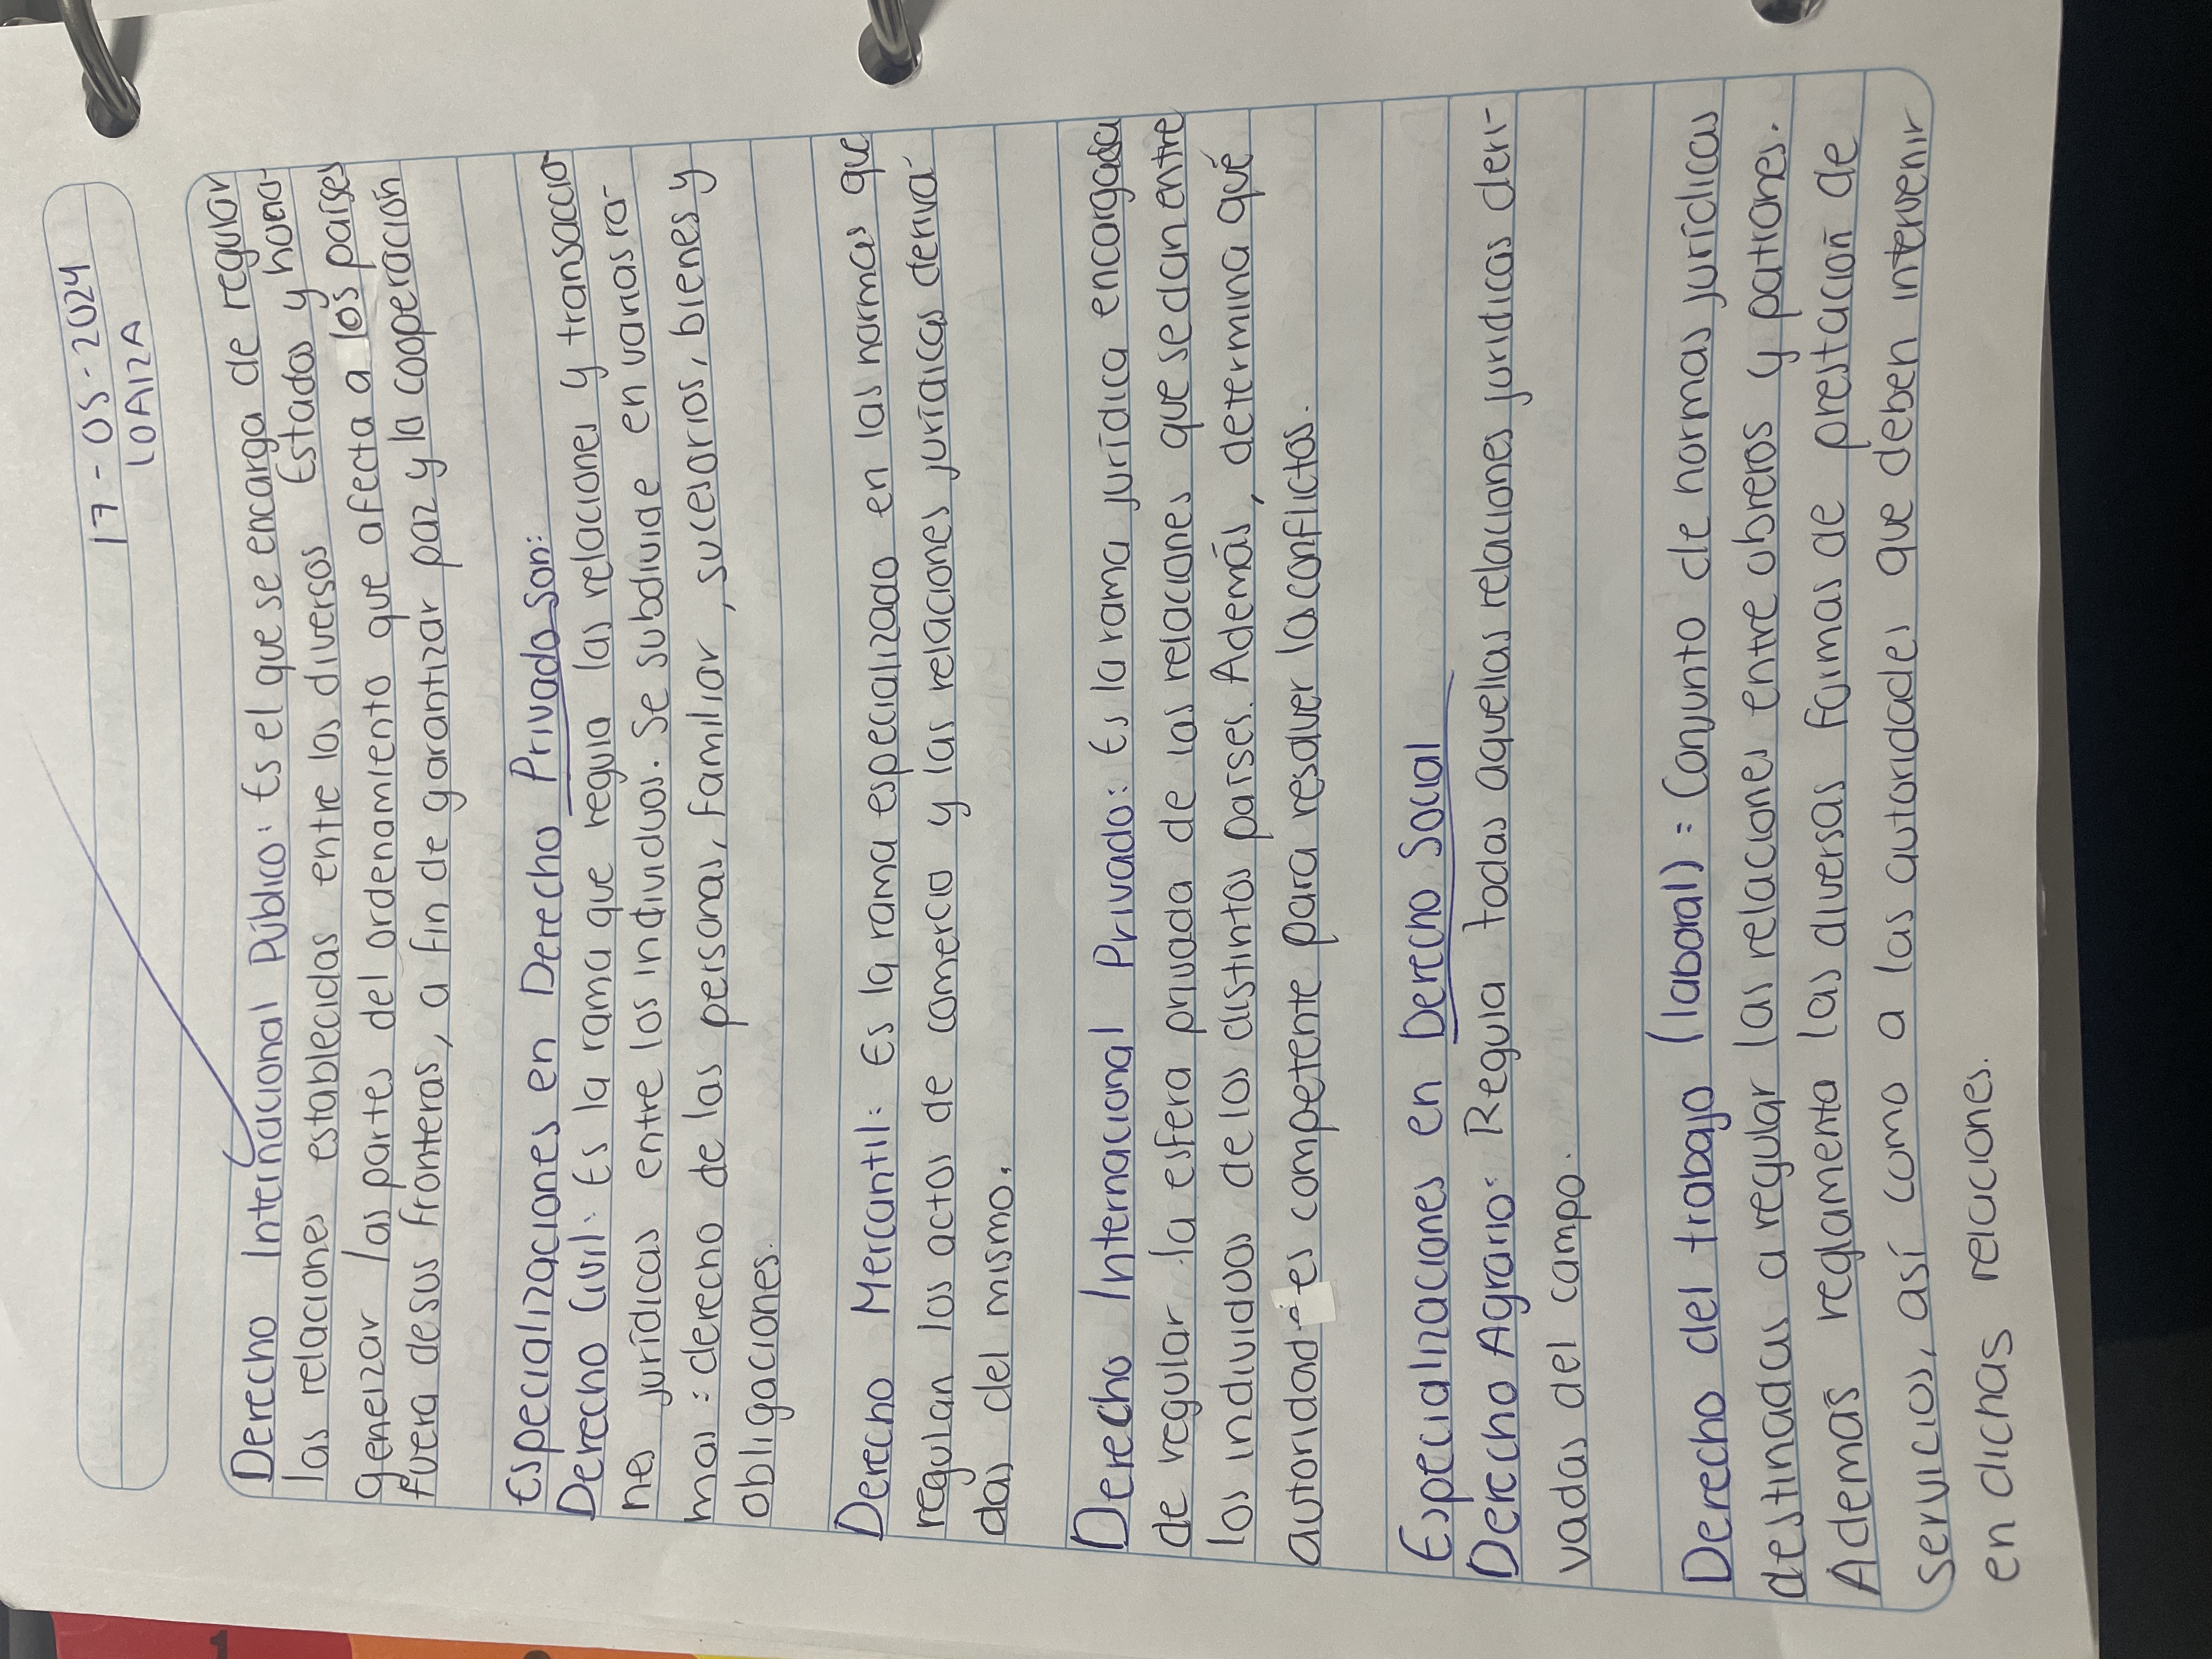 17-05-2024
10A12A
Derecho Internacional Público: Es el que se encarga de regular
las relaciones establecidas entre los diversos Estados y hora-
generar las partes del ordenamiento que afecta a los países
fuera de sus fronteras, a fin de garantizar paz y la cooperación
Especializaciones en Derecho Privado son:
Derecho Civil: Es la rama que regula las relaciones y transaccio
nes jurídicas entre los individuos. Se subdivide en varias ra-
mas: derecho de las personas, familiar, sucesorios, bienes y
obligaciones.
Derecho Mercantil: Es la rama especializado en las normas que
regulan los actos de comercio y las relaciones jurídicas deriva-
das del mismo.
Derecho Internacional Privado: Es la rama jurídica encargada
de regular la esfera privada de las relaciones que se dan entre
los individuos de los distintos países. Además, determina qué
autoridad es competente para resolver los conflictos.
Especializaciones en Derecho Social
Derecho Agrario: Regula todas aquellas relaciones juridicas deri-
vadas del campo.
Derecho del trabajo (laboral): Conjunto de normas jurídicas
destinadas a regular las relaciones entre obreros y patrones.
Además reglamenta las diversas formas de prestación de
servicios, así como a las autoridades que deben intervenir
en dichas relaciones.
1